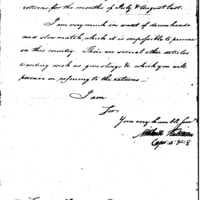 returns for the months of July & August last.
I am very much in want of drum heads
and slow match which it is impossible to procure
in this country. There are several other articles
wanting such as gun slings & which you will
perceive on referring to the returns
I am
Sir
Your very hum bl Serv
Capt